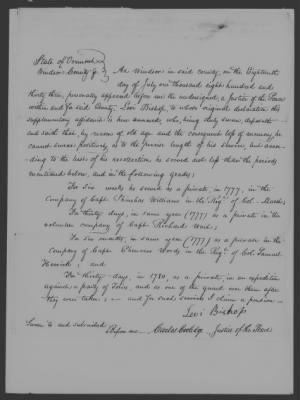 State of Vermont }
Windsor County } At Windsor in said county, on the Eighteenth
day of July one thousand eight hundred and
thirty three, personally appeared before me the undersigned, a Justice of the Peace
within and for said County, Levi Bishop, to whose original declaration this
supplementary affidavit is here annexed, who, being duly sworn, deposeth
and saith that, by reason of old age and the consequent loss of memory, he
cannot swear positively as to the precise length of his service, but accor-
ding to the best of his recollection he served not less than the periods
mentioned below, and in the following grades;
For six weeks he served as a private, in 1777, in the
company of Capt. Phinehas Williams in the Regt. of Col. Marsh;
For thirty days, in same year (1777) as a private in the
volunteer company of Capt. Richard
For six months, in same year (1777) as a private in the
company of Capt. Woods in the Regt. of Col. Samuel
Herrick; and
For thirty days, in 1780, as a private, in an expedition
against a party of Tories, and as one of the guard over them after
they were taken; — and for such service I claim a pension—
Levi Bishop
Sworn to and subscribed
Before me— Carlos Coolidge Justice of the Peace